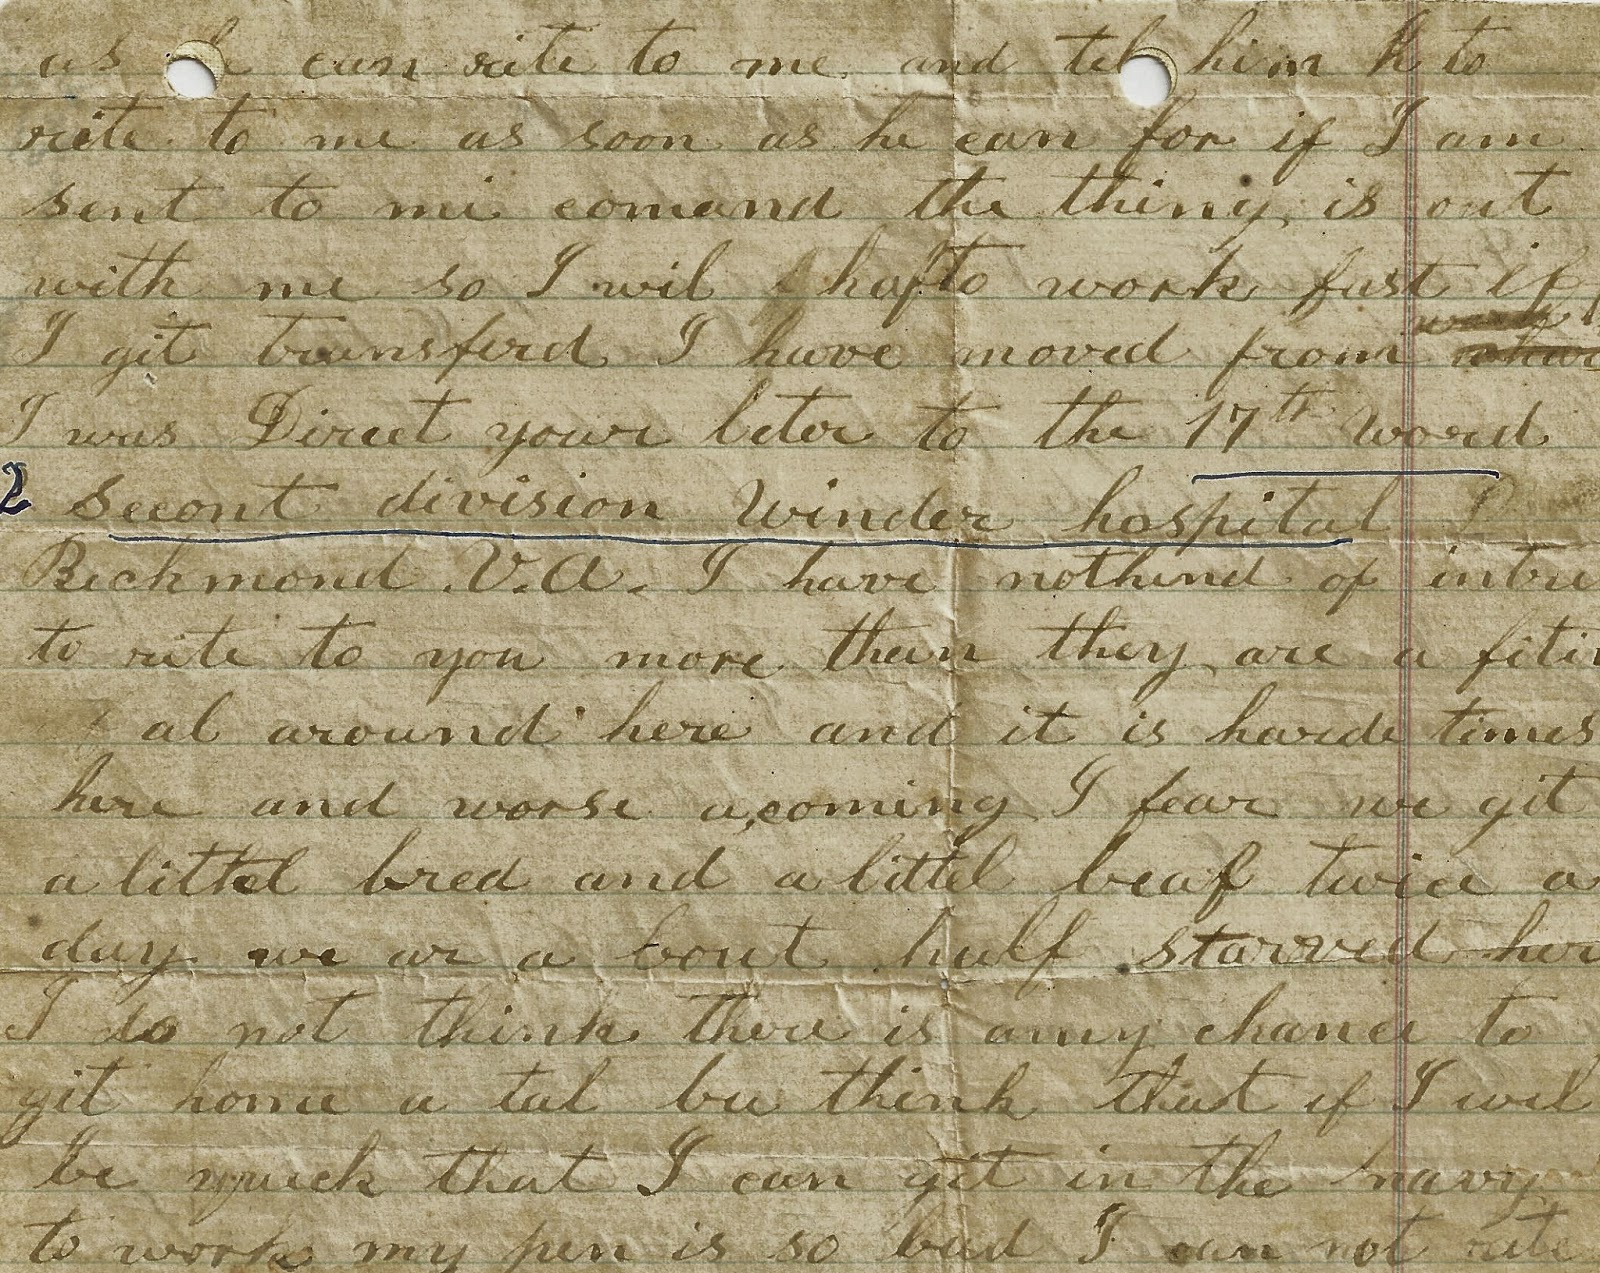 as he can rite to me and tel him to
rite to me as soon as he can for if I am
sent to mi comand the thing is out
with me so I wil hafto work fast if
I git transferd I have moved from
I was Direct your leter to the 17th word
2 Secont division Winder hospital
Richmond V.A. I have nothind of intre
to rite to you more than they are a fitin
al around here and it is harde times
here and worse acoming I fear we git
a littel bred and a littel beaf twice a
day we ar a bout half starved her
I do not think there is anny chance to
git home a tal bu think that if I wil
be quick that I can git in the navy
to work my pen is so bad I can not rite